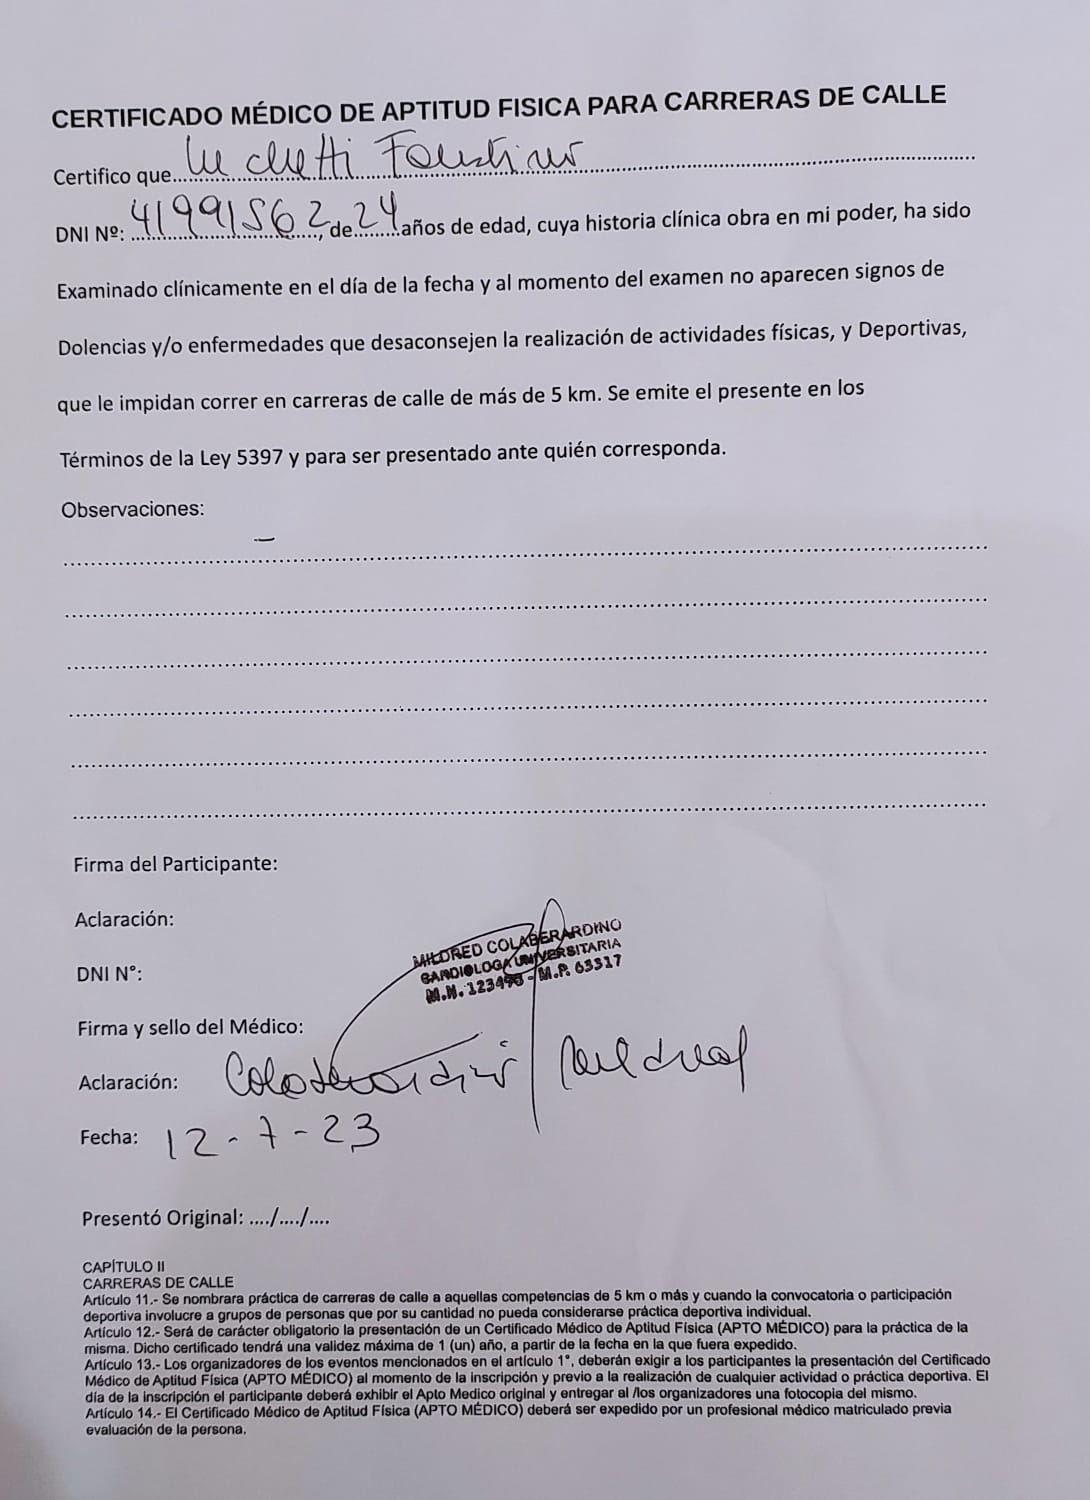 CERTIFICADO MÉDICO DE APTITUD FISICA PARA CARRERAS DE CALLE
Certifico que...Luchetti Faustino
DNI Nº: 41991562, de 24 años de edad, cuya historia clínica obra en mi poder, ha sido
Examinado clínicamente en el día de la fecha y al momento del examen no aparecen signos de
Dolencias y/o enfermedades que desaconsejen la realización de actividades físicas, y Deportivas,
que le impidan correr en carreras de calle de más de 5 km. Se emite el presente en los
Términos de la Ley 5397 y para ser presentado ante quién corresponda.
Observaciones:
—
Firma del Participante:
Aclaración:
MILDRED COLABERARDINO
CARDIOLOGA UNIVERSITARIA
DNI N°:
M.N. 123490 - M.P. 63317
Firma y sello del Médico:
Aclaración: Colaberardino Mildred
Fecha: 12-7-23
Presentó Original: ..../..../....
CAPÍTULO II
CARRERAS DE CALLE
Artículo 11.- Se nombrara práctica de carreras de calle a aquellas competencias de 5 km o más y cuando la convocatoria o participación
deportiva involucre a grupos de personas que por su cantidad no pueda considerarse práctica deportiva individual.
Artículo 12.- Será de carácter obligatorio la presentación de un Certificado Médico de Aptitud Física (APTO MÉDICO) para la práctica de la
misma. Dicho certificado tendrá una validez máxima de 1 (un) año, a partir de la fecha en la que fuera expedido.
Artículo 13.- Los organizadores de los eventos mencionados en el artículo 1°, deberán exigir a los participantes la presentación del Certificado
Médico de Aptitud Física (APTO MÉDICO) al momento de la inscripción y previo a la realización de cualquier actividad o práctica deportiva. El
día de la inscripción el participante deberá exhibir el Apto Medico original y entregar al /los organizadores una fotocopia del mismo.
Artículo 14.- El Certificado Médico de Aptitud Física (APTO MÉDICO) deberá ser expedido por un profesional médico matriculado previa
evaluación de la persona.